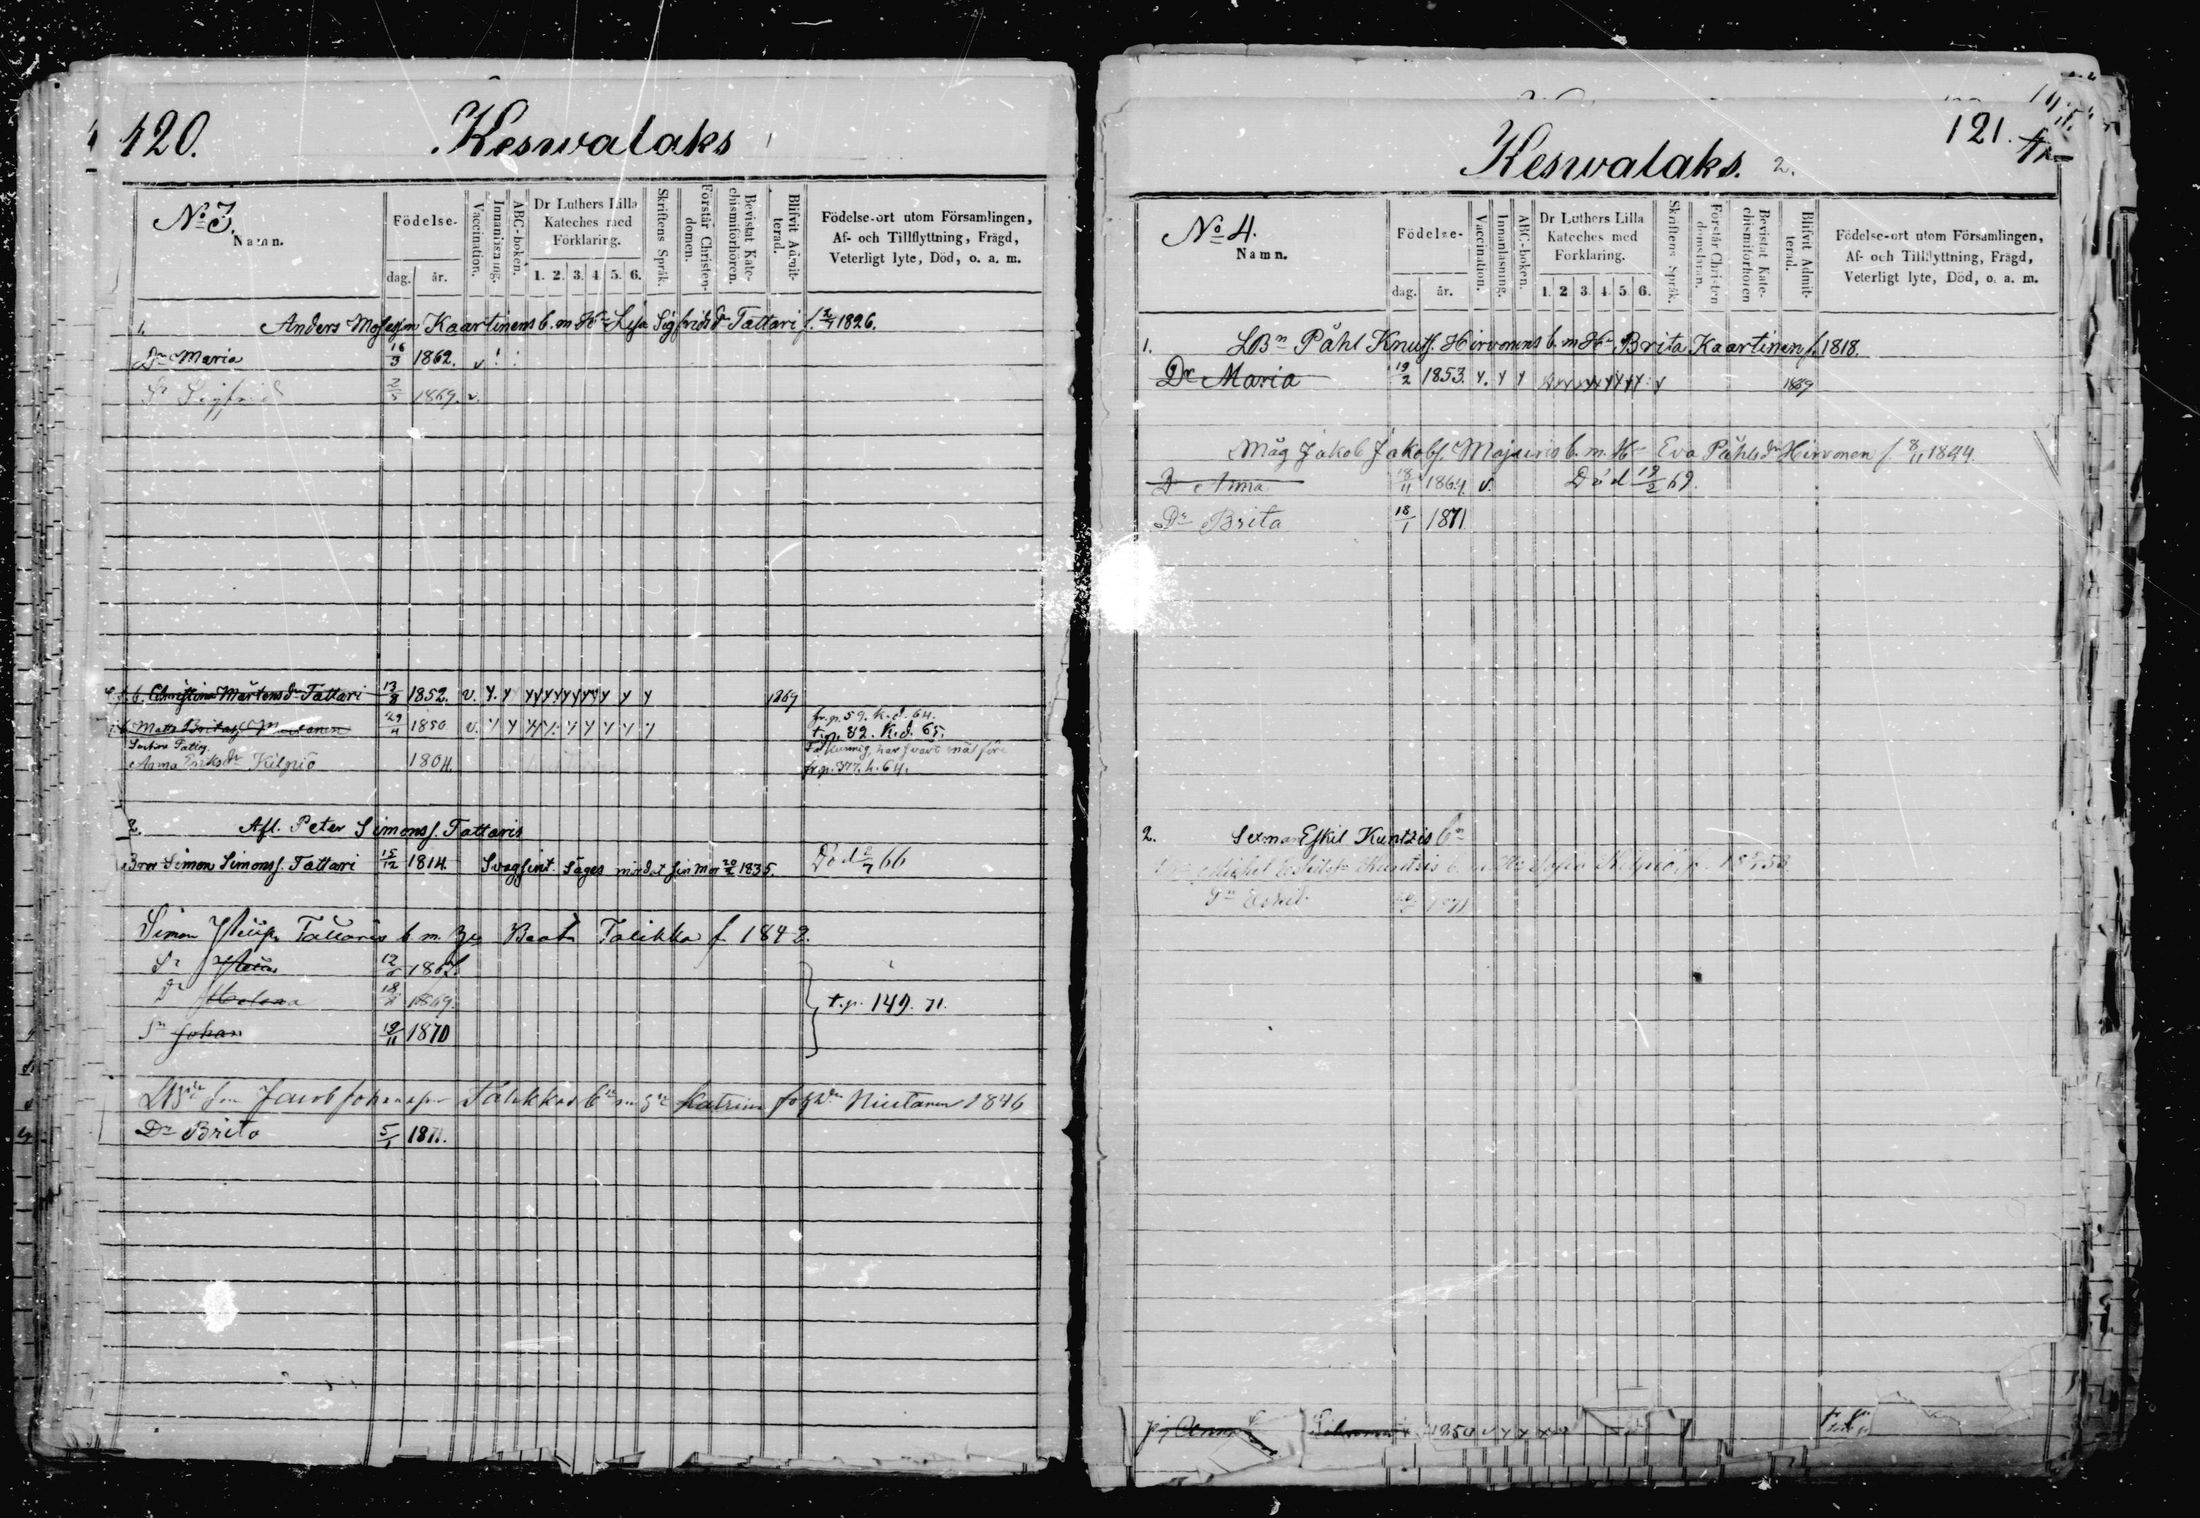 120.
Keswalaks
No 3.
Namn.
Födelse-
dag.
år.
Vaccination.
Innanläsning.
ABC-boken.
Dr Luthers Lilla
Kateches med
Förklaring.
1. 2. 3. 4. 5. 6.
Skriftens Språk.
Förstår Christen-
domen.
Bevistat Kate-
chismiförhören.
Blifvit Admit-
terad.
Födelse-ort utom Församlingen,
Af- och Tillflyttning, Frägd,
Veterligt lyte, Död, o. a. m.
1. Anders Mosesson Kaartinens b. m Hu Lisa Sigfridsdr Tattari f. 1826.
Dr Maria 16/3 1862. v
Sn Sigfrid 1869. v.
b. Christina Mårtensdr Tattari 13/8 1852. v. y. y y y y y y y y y y 1869
Matts 29/4 1850 v. y y y y y y y y y fr. p. 59. k. d. 64.
t. p. 82. k. d. 65.
Anna Eriksdr Kilpiö 1804. fr. p. 377. h. 64.
2. Afl. Peter Simonss. Tattaris
Bror Simon Simonss. Tattari 15/12 1814. Svagsint. Säges mördat sin Mor 1835. Död 2/7 66
Simon Tattaris b m. Hu Beata Talikka f. 1842.
Sn
Dr Helena 1869.
Sn Johan 19/11 1870
t. p. 149. 71.
Jacob Johansson Talikkas Katrina Niutanen 1846
Dr Brita 5/1 1871.
121.
Keswalaks. 2.
No 4.
Namn.
Födelse-
dag.
år.
Vaccination.
Innanläsning.
ABC-boken.
Dr Luthers Lilla
Kateches med
Förklaring.
1. 2 3. 4. 5 6.
Skriftens Språk.
Förstår Christen
domslaran.
Bevistat Kate-
chismiförhören
Blifvit Admit-
terad.
Födelse-ort utom Församlingen,
Af- och Tillflyttning, Frägd,
Veterligt lyte, Död, o. a. m.
1. LBn Påhl Knutss. Hirvonens b. m Hu Brita Kaartinen f. 1818.
Dr Maria 19/2 1853. y. y y y y y y y y y 1869
Måg Jakob Jakobss. Majuris b. m. Hu Eva Påhlsdr Hirvonen f. 8/11 1844
Dr Anna 18/11 1864. v. Död 19/2 69.
Dr Brita 18/1 1871
2. Eskil Kuntsis bn
Michel Kuntsis
Sn Eskil 1871
Anna 1850 v y y